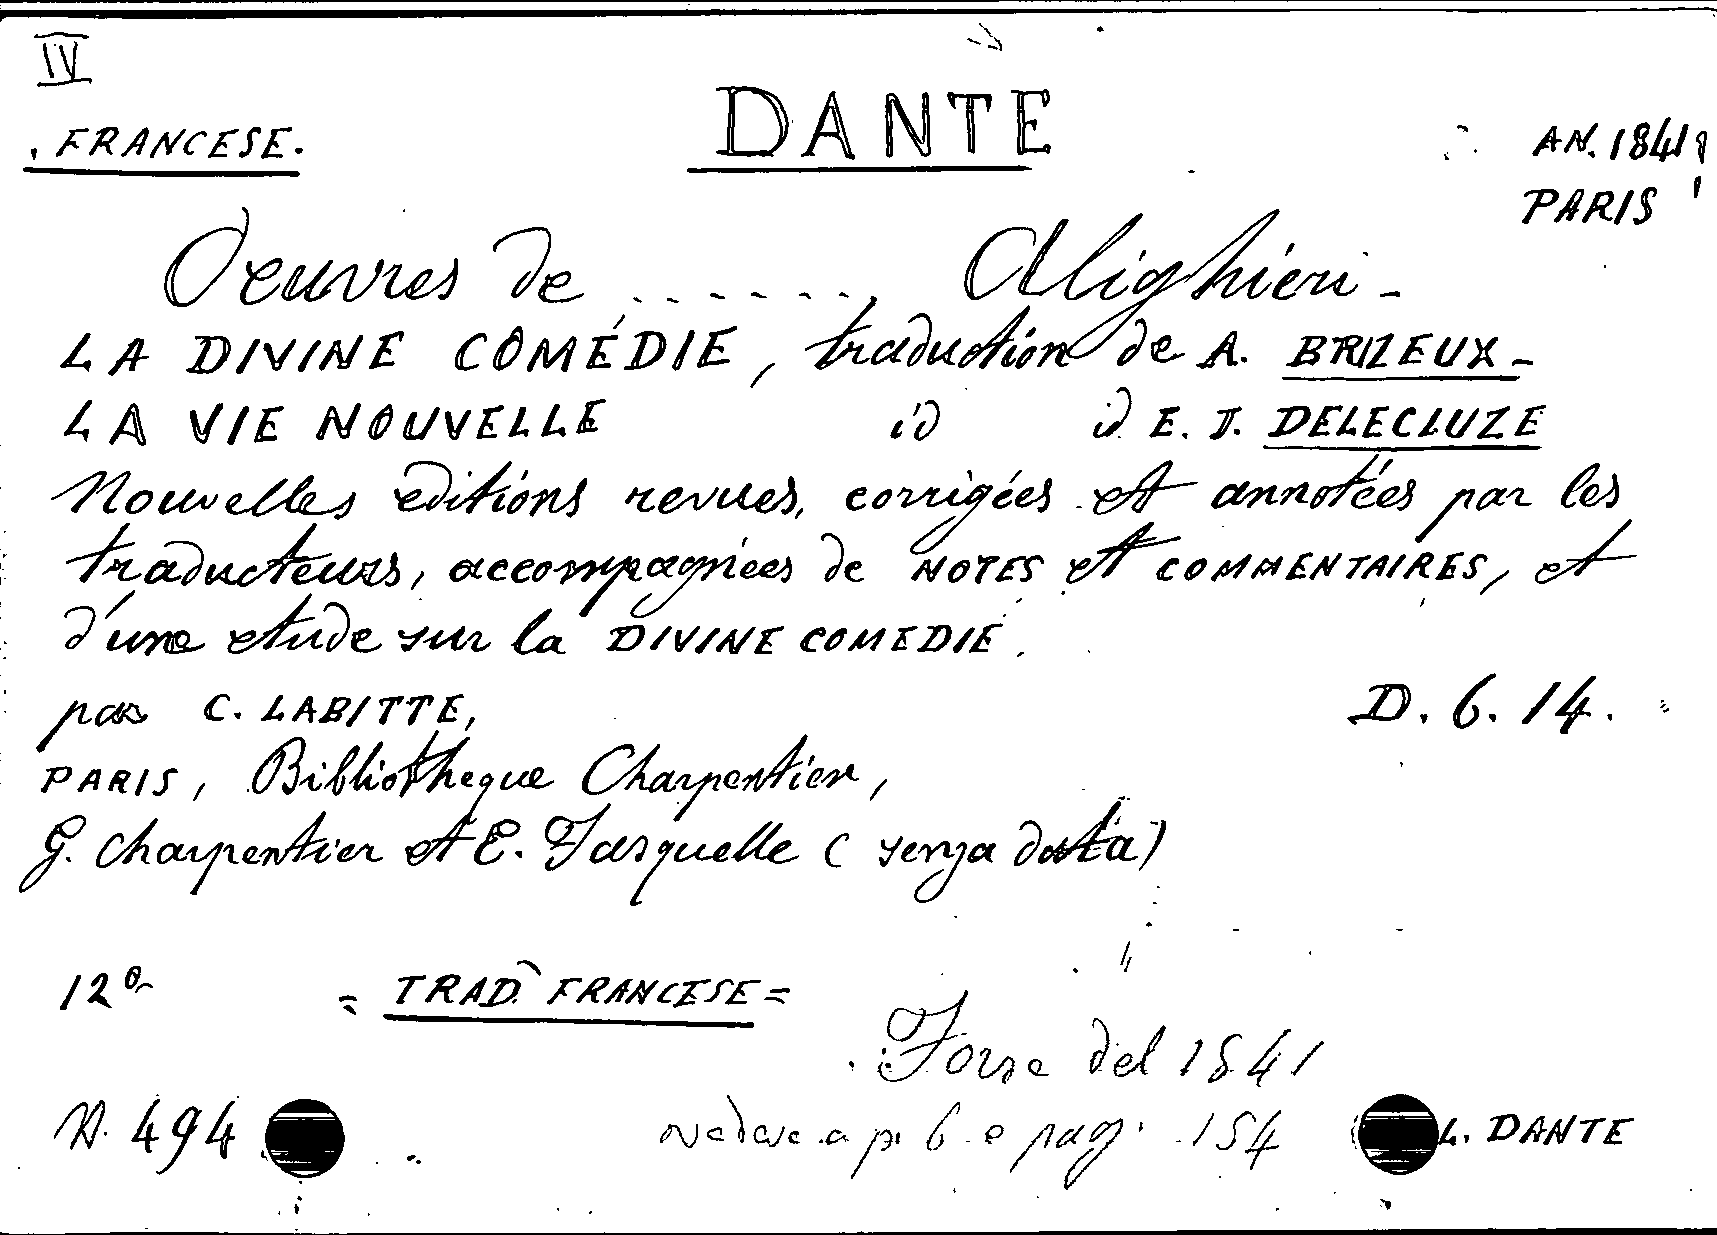 IV
DANTE
. FRANCESE.
AN. 1841?
PARIS
Oeuvres de ....... Alighieri -
LA DIVINE COMÉDIE, traduction de A. BRIZEUX -
LA VIE NOUVELLE id id E. J. DELECLUZE
Nouvelles editions revues, corrigées et annotées par les
traducteurs, accompagnées de NOTES et COMMENTAIRES, et
d'une etude sur la DIVINE COMEDIE.
par C. LABITTE,
D. 6. 14.
PARIS, Bibliotheque Charpentier,
G. Charpentier et E. Fasquelle (senza data)
12º
= TRAD. FRANCESE =
Forse del 1841
vedere a p. 6 e pag. 154
N. 494
L. DANTE